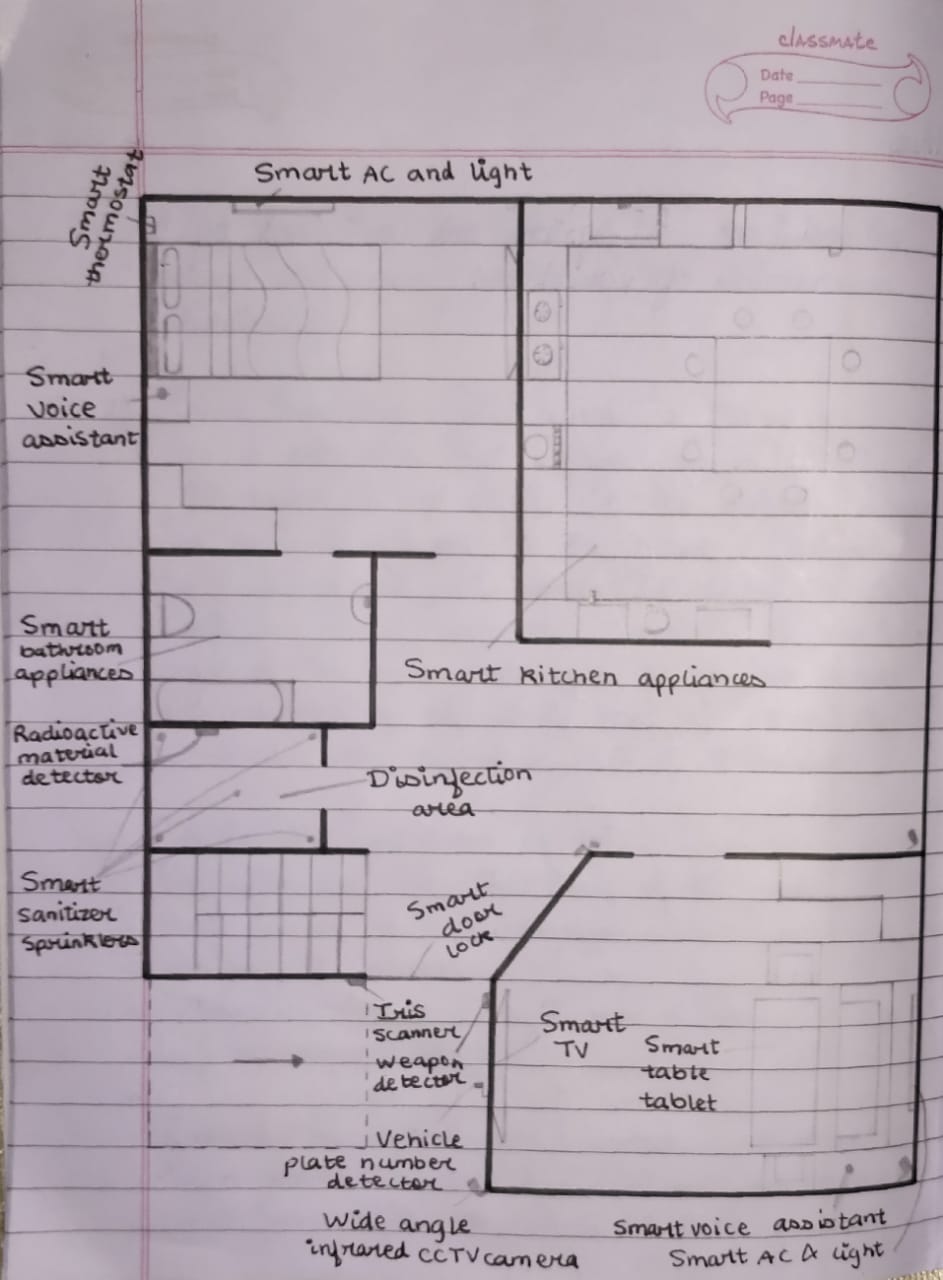 classmate
Date
Page
Smart AC and light
Smart
thermostat
Smart
voice
assistant
Smart
bathroom
appliances
Smart kitchen appliances
Radioactive
material
detector
Disinfection
area
Smart
sanitizer
sprinklers
Smart
door
lock
Iris
scanner
weapon
detector
Smart
TV
Smart
table
tablet
Vehicle
plate number
detector
Wide angle
infrared CCTV camera
Smart voice assistant
Smart AC & light